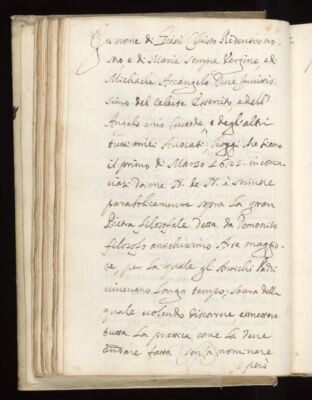 In nome di Giesù Christo Redentor no
stro, e di Maria sempre Vergine, e di
Michaele Arcangelo Duce Inuitis-
simo del celeste Esercito, e dell'
Angelo mio Custode, e degl'altri
tutti miei Auocati, hoggi che siamo
il primo di Marzo 1621. incomin
ciasi da me N. de N. à scriuere
parabolicamente sopra la gran
Pietra filosofale detta da
filosofo antichissimo Arte maggio-
re, per la quale gl'Antichi Padri
uiueuano longo tempo, soura della
quale uolendo discorrere e mettere
tutta la prattica come la deue
andare fatta, senza nominare
però